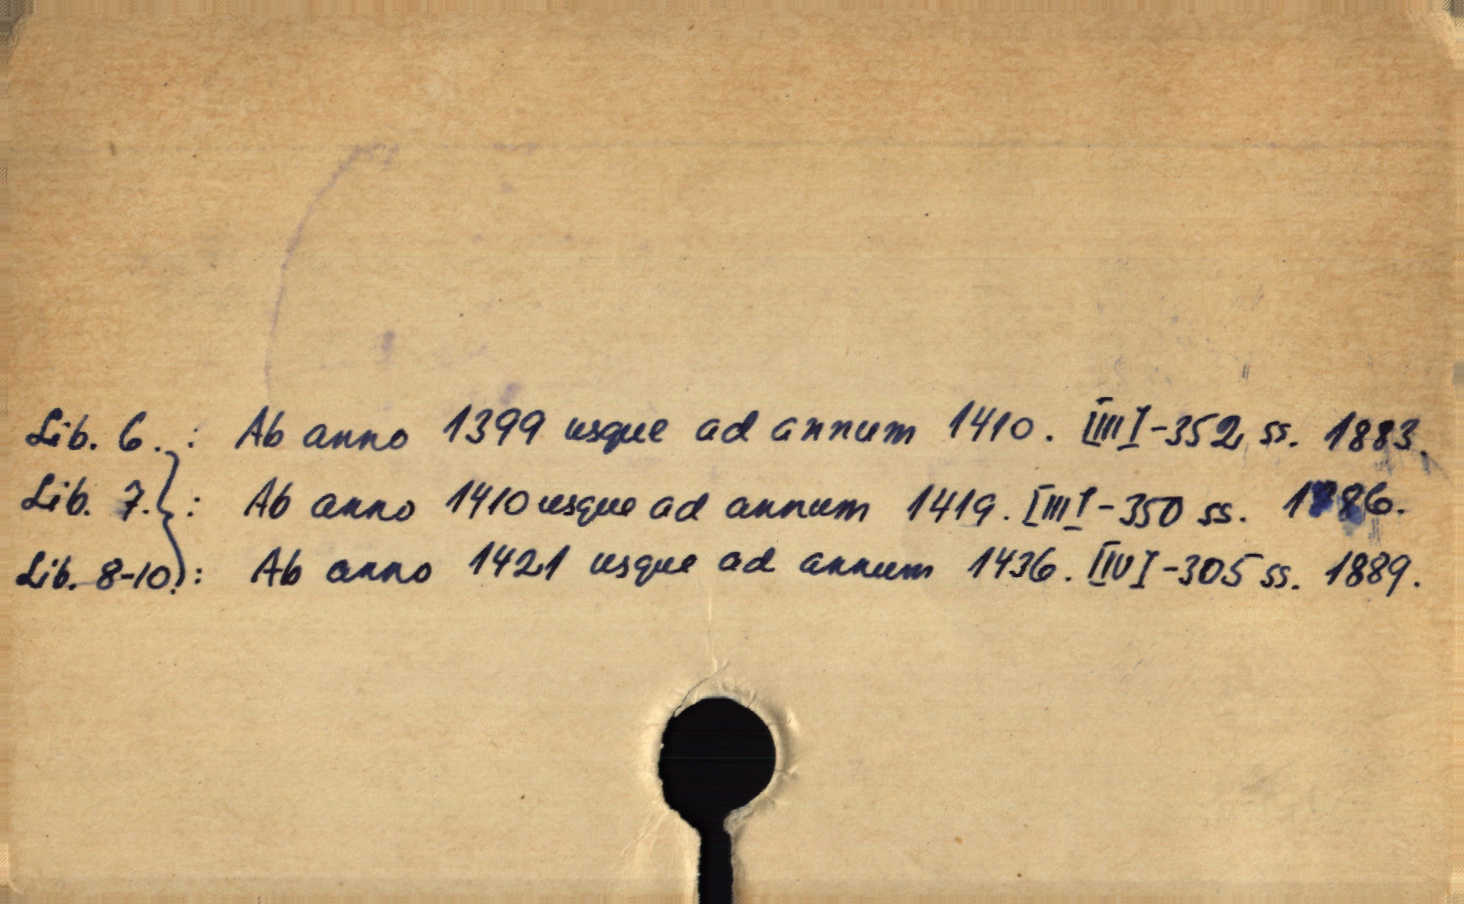 Lib. 6. : Ab anno 1399 usque ad annum 1410. [III]-352 ss. 1883.
Lib. 7. : Ab anno 1410 usque ad annum 1419. [III]-350 ss. 1886.
Lib. 8-10. : Ab anno 1421 usque ad annum 1436. [IV]-305 ss. 1889.